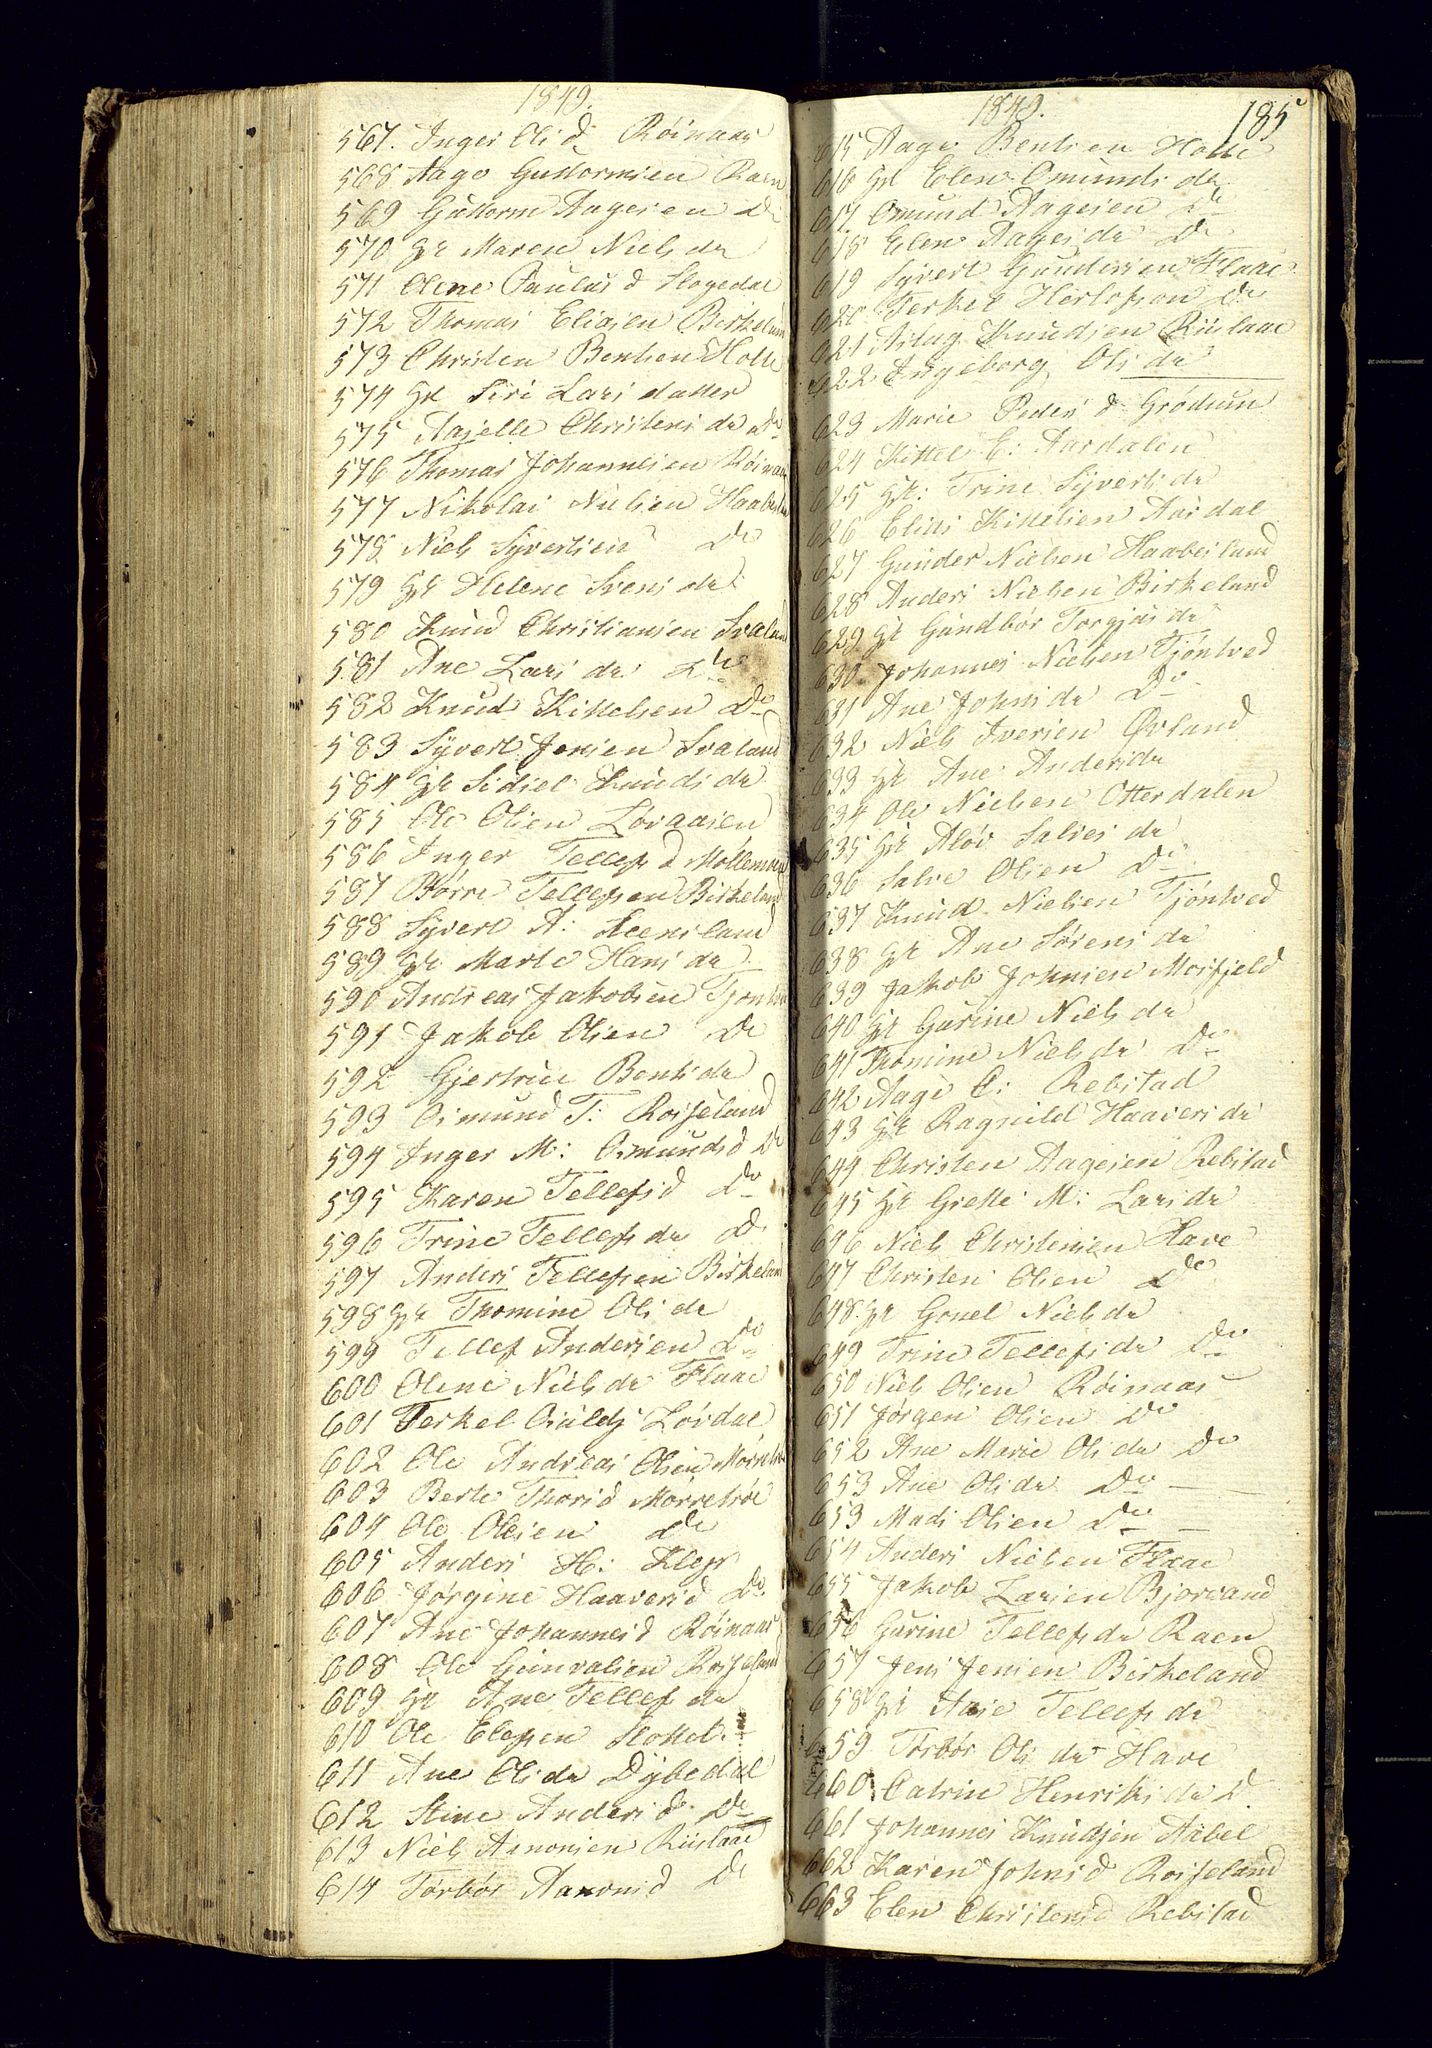 1849.
567. Inger Olsd Röinaas
568 Aage Guttormsen Raen
569 Guttorm Aagesen Do
570 Hr Maren Niels da
571 Olene Paulus d Slogedal
572 Thomas Eliasen Birkeland
573 Christen Bentsen Holte
574 Hr Siri Lars datter
575 Aaselle Christens da Do
576 Thomas Johannesen Röinaas
577 Nikolai Nielsen Haabesland
578 Niels Syvertsen Do
579 Hr Helene Svens da
580 Knud Christiansen Svaland
581 Ane Lars da Do
582 Knud Kittelsen Do
583 Syvert Jensen Svaland
584 Hr Sidsel Knuds da
585 Ole Olsen Lövaasen
586 Inger Tellefs d Möllemoen
587 Börre Tellefsen Birkeland
588 Syvert A: Steensland
589 Hr Marte Hans da
590 Andreas Jakobsen Tjöntved
591 Jakob Olsen Do
592 Gjertrue Bents da
593 Osmund T: Rosseland
594 Inger M: Osmunds d Do
595 Karen Tellefs d Do
596 Trine Tellefs da D
597 Anders Tellefsen Birkeland
598 Hr Thomine Ols da
599 Tellef Andersen Do
600 Olene Niels da Flaae
601 Terkel Osulds Lövdal
602 Ole Andreas Olsen
603 Berte Thors d
604 Ole Olsen Do
605 Anders H: Kleps
606 Jörgine Haavers d Do
607 Ane Johannes d Röinaas
608 Ole Gunvalsen Rosseland
609 Hr Ane Tellefs da
610 Ole Elefsen Slottet
611 Ane Ols da Dybedal
612 Stine Anders d Do
613 Niels Aanonsen Riislaae
614 Torbör Aanons d Do
1849. 185
615 Aage Bentsen Holte
616 Hr Elen Omunds da
617. Omund Aagesen Do
618 Elen Aages da Do
619 Syvert Gundersen Flaae
620 Terkel Herlofson Do
621 Aslag Knudsen Riislaae
622 Ingeborg Ols da
623 Marie Peders d Grödum
624 Kittel E: Aardalen
625 Hr: Trine Syverts da
626 Elias Kittelsen Aardal
627 Gunder Nielsen Haabesland
628 Anders Nielsen Birkeland
629 Hr Gundbör Torgjus da
630. Johannes Nielsen Tjöntved
631 Ane Johns da Do
632 Niels Iversen Övland
633 Hr Ane Anders da
634 Ole Nielsen Otterdalen
635 Hr Alöv Salves da
636 Salve Olsen Do
637 Knud Nielsen Tjöntved
638 Hr Ane Sörens da
639 Jakob Johnsen Mosfjeld
640 Hr Gurine Niels da
641 Thomine Niels da Do
642 Aage C: Rebstad
643 Hr Ragnild Haavers da
644 Christen Aagesen Rebstad
645 Hr Grethe M: Lars da
646 Niels Christensen Have
647 Christen Olsen Do
648. Hr Gonel Niels da
649 Trine Tellefs da Do
650 Niels Olsen Röinaas
651 Jörgen Olsen Do
652 Ane Marie Ols da Do
653 Ane Ols da Do
653 Mads Olsen Do
654 Anders Nielsen Flaae
655 Jakob Larsen Bjorvand
656 Gurine Tellefs da Raen
657 Jens Jensen Birkeland
658 Hr Aase Tellefs da
659 Torbör Ols da Have
660 Catrin Henriks da D
661 Johannes Knudsen Aabel
662 Karen Johns d Rosseland
663 Elen Christens d Rebstad